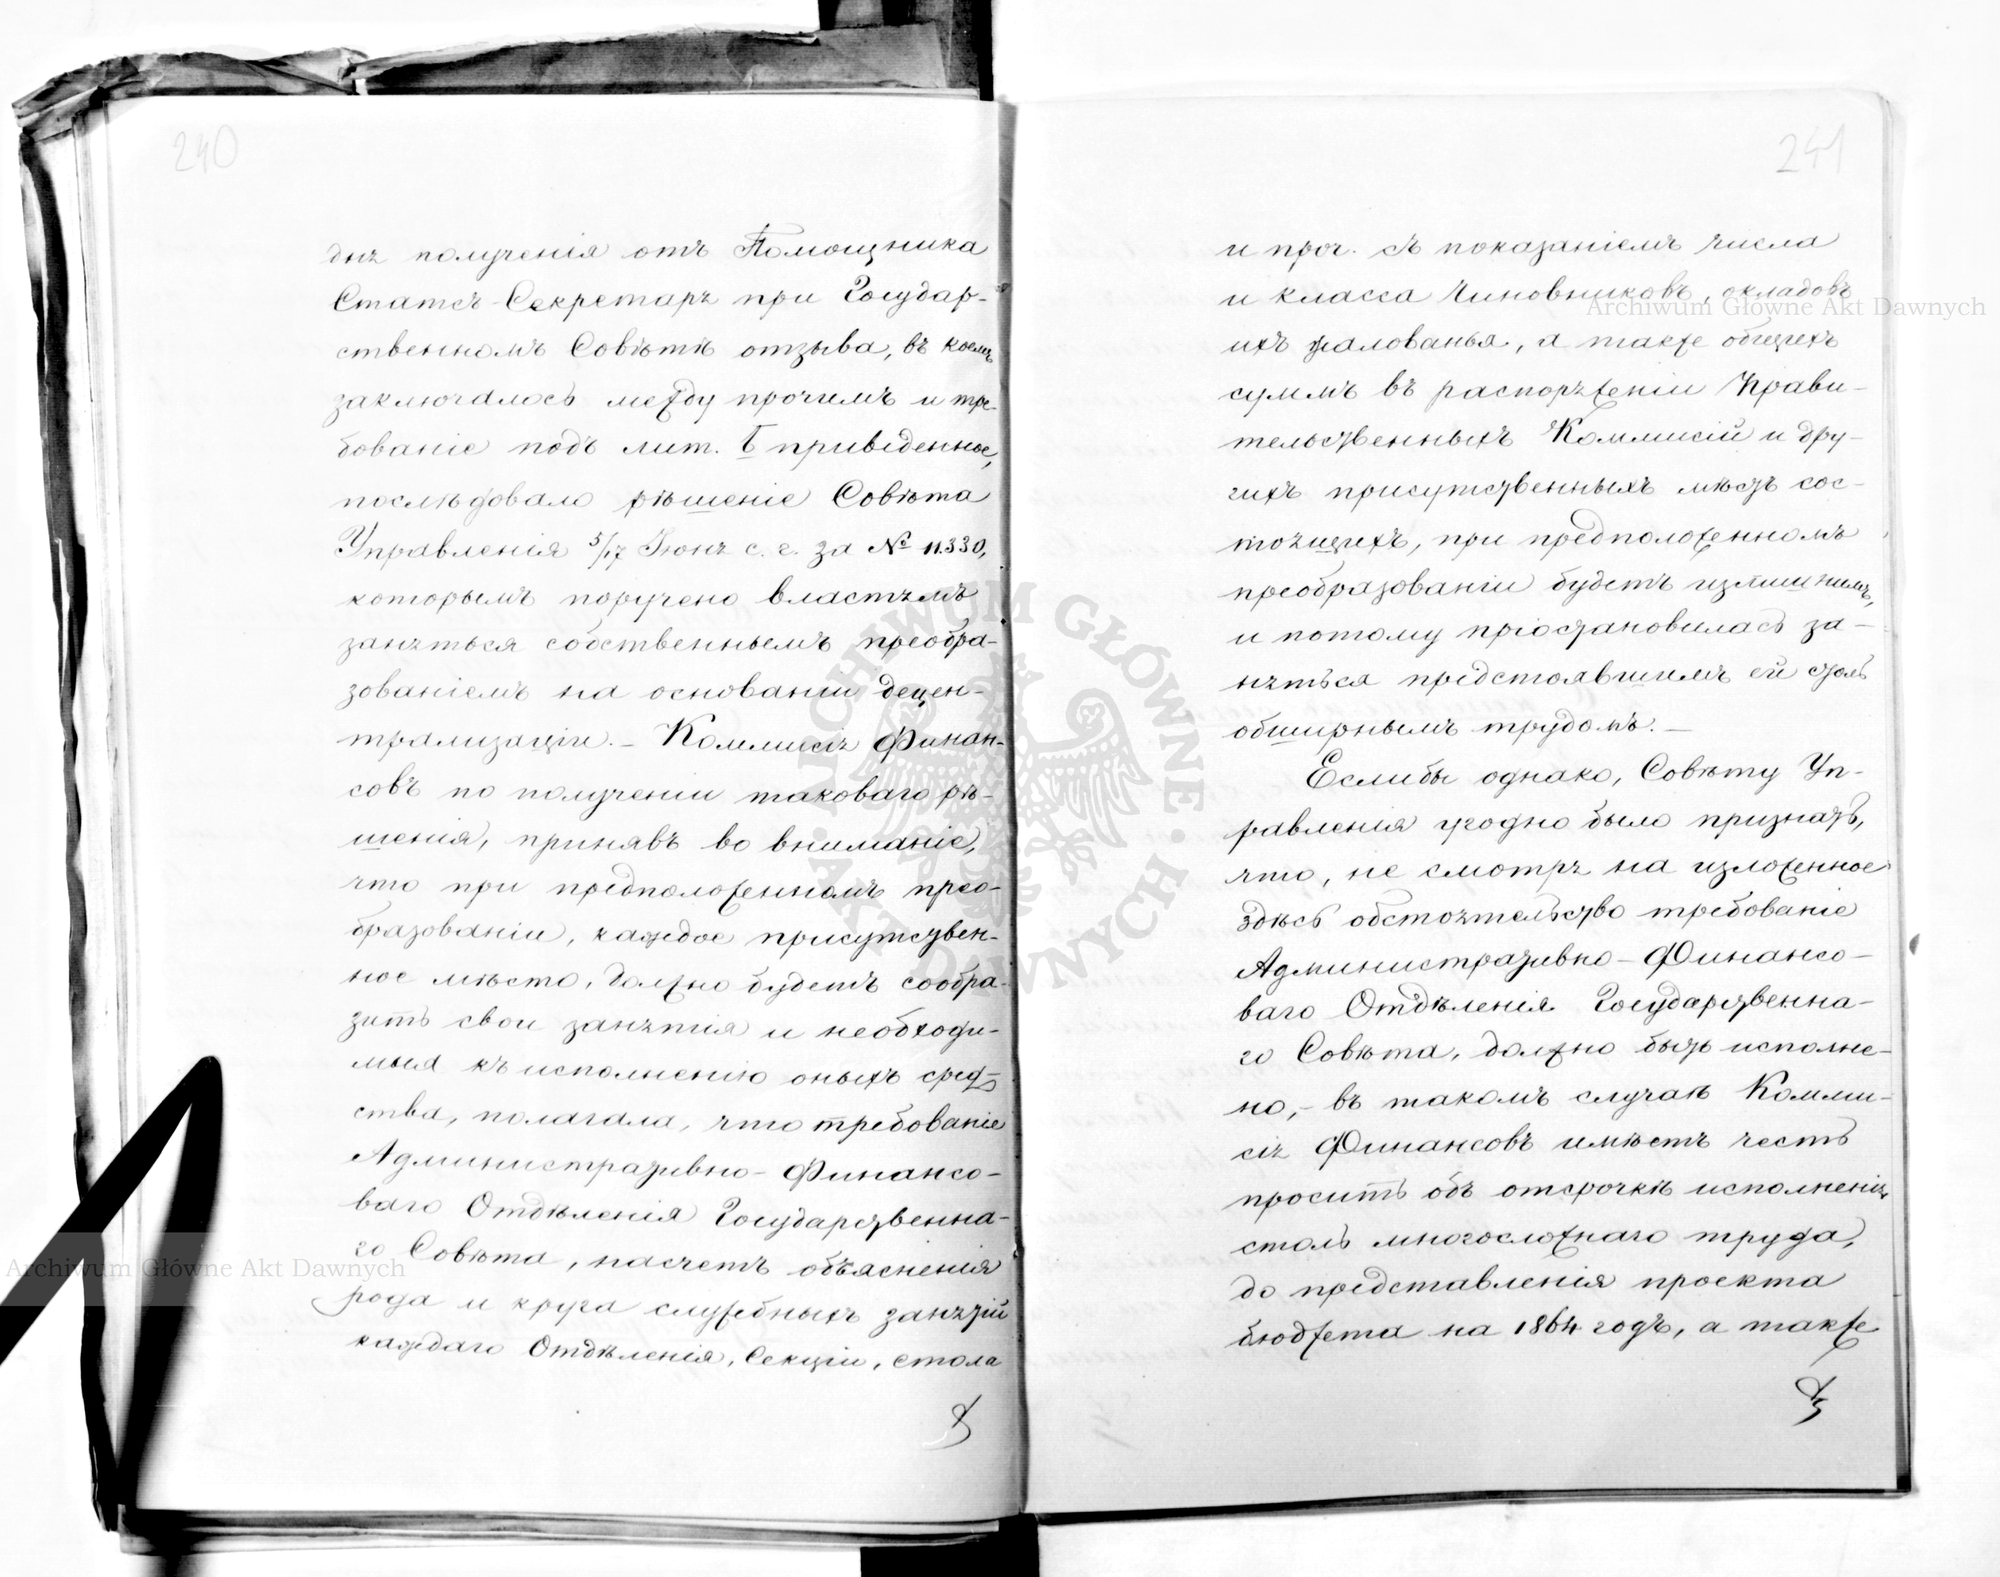 240
дня полученія отъ Помощника
Статсъ-Секретаря при Государ-
ственномъ Совѣтѣ отзыва, въ коемъ
заключалось между прочимъ и тре-
бованіе подъ лит. Б приведенное,
послѣдовало рѣшеніе Совѣта
Управленія 5/17 Іюня с. г. за № 11.330,
которымъ поручено властямъ
заняться собственнымъ преобра-
зованіемъ на основаніи децен-
трализаціи. – Коммисія Финан-
совъ по полученіи таковаго рѣ-
шенія, принявъ во вниманіе,
что при предположенномъ прео-
бразованіи, каждое присутствен-
ное мѣсто, должно будетъ сообра-
зить свои занятія и необходи-
мыя къ исполненію оныхъ сред-
ства, полагала, что требованіе
Административно-Финансо-
ваго Отдѣленія Государственна-
го Совѣта, насчетъ объясненія
рода и круга служебныхъ занятій
каждаго Отдѣленія, Секціи, стола
241
и проч. съ показаніемъ числа
и класса Чиновниковъ, окладовъ
ихъ жалованья, а также общихъ
суммъ въ распоряженіи Прави-
тельственныхъ Коммисій и дру-
гихъ присутственныхъ мѣстъ сос-
тоящихъ, при предположенномъ
преобразованіи будетъ излишнимъ,
и потому пріостановилась за-
няться предстоявшимъ ей столь
обширнымъ трудомъ. –
Еслибы однако, Совѣту Уп-
равленія угодно было признать,
что, не смотря на изложенное
здѣсь обстоятельство требованіе
Административно-Финансо-
ваго Отдѣленія Государственна-
го Совѣта, должно быть исполне-
но, – въ такомъ случаѣ Комми-
сія Финансовъ имѣетъ честь
просить объ отсрочкѣ исполненія
столь многосложнаго труда,
до представленія проекта
бюджета на 1864 годъ, а также
Archiwum Główne Akt Dawnych
Archiwum Główne Akt Dawnych
ARCHIWUM GŁÓWNE AKT DAWNYCH